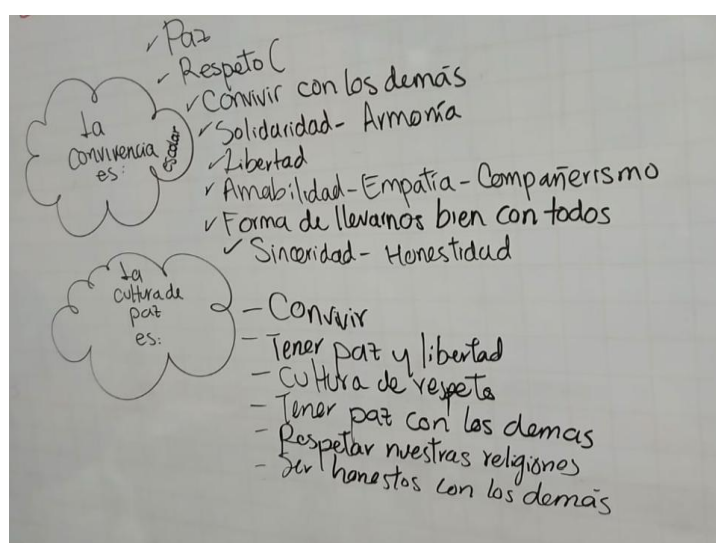 La
convivencia
escolar
es:
✓ Paz
✓ Respeto (
✓ Convivir con los demás
✓ Solidaridad - Armonía
✓ Libertad
✓ Amabilidad - Empatía - Compañerismo
✓ Forma de llevarnos bien con todos
✓ Sinceridad - Honestidad
La
cultura de
paz
es:
- Convivir
- Tener paz y libertad
- Cultura de respeto
- Tener paz con los demas
- Respetar nuestras religiones
- Ser honestos con los demás